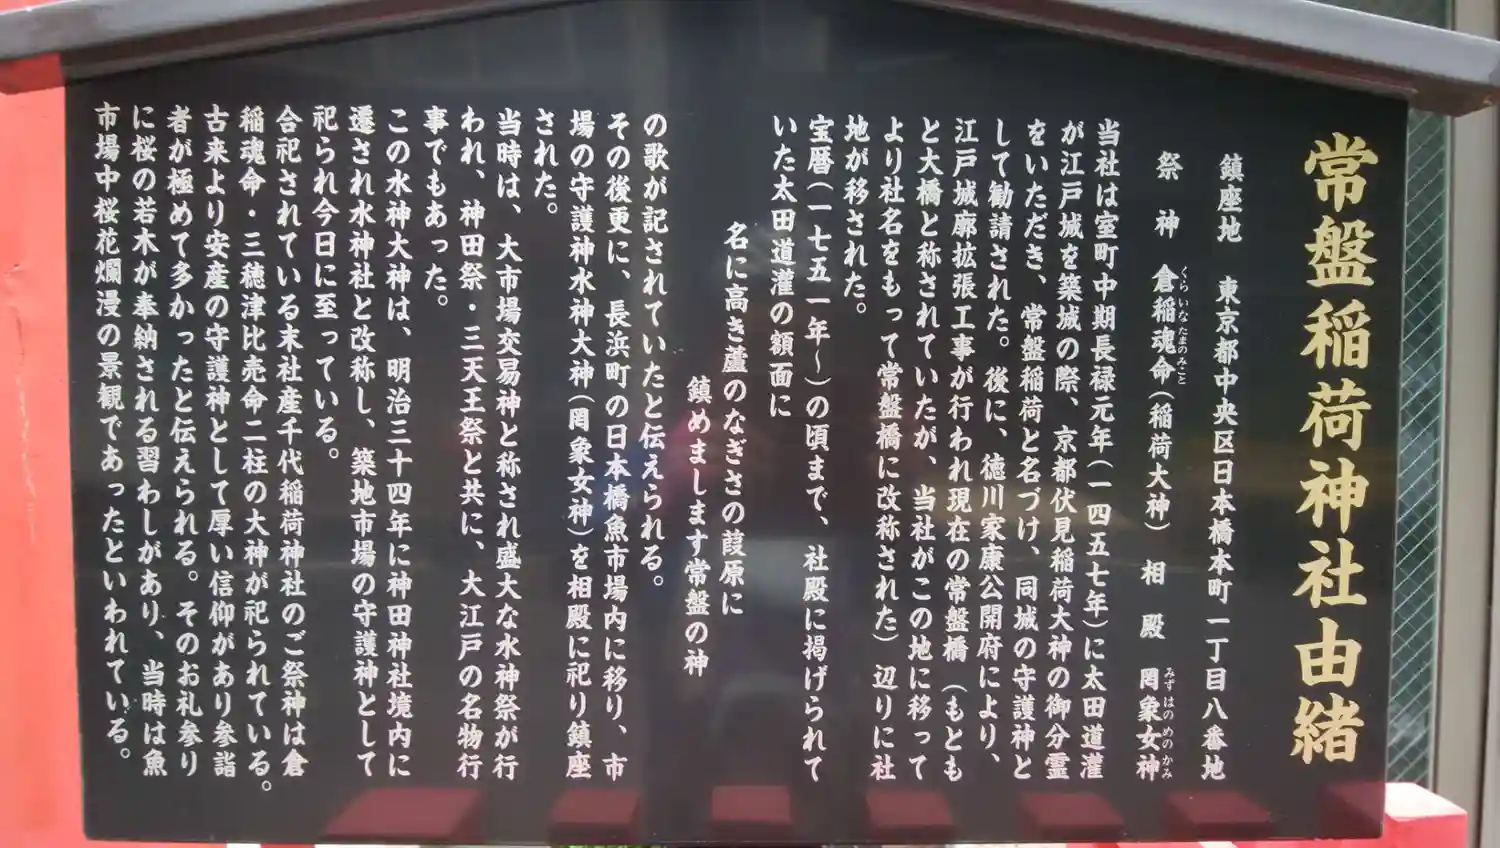 常盤稲荷神社由緒
鎮座地　東京都中央区日本橋本町一丁目八番地
祭　神　倉稲魂命（稲荷大神）　相　殿　罔象女神
くらいなたまのみこと　みずはのめのかみ
当社は室町中期長禄元年（一四五七年）に太田道灌
が江戸城を築城の際、京都伏見稲荷大神の御分霊
をいただき、常盤稲荷と名づけ、同城の守護神と
して勧請された。後に、徳川家康公開府により、
江戸城廓拡張工事が行われ現在の常盤橋（もとも
と大橋と称されていたが、当社がこの地に移って
より社名をもって常盤橋に改称された）辺りに社
地が移された。
宝暦（一七五一年～）の頃まで、社殿に掲げられて
いた太田道灌の額面に
名に高き蘆のなぎさの葭原に
鎮めまします常盤の神
の歌が記されていたと伝えられる。
その後更に、長浜町の日本橋魚市場内に移り、市
場の守護神水神大神（罔象女神）を相殿に祀り鎮座
された。
当時は、大市場交易神と称され盛大な水神祭が行
われ、神田祭・三天王祭と共に、大江戸の名物行
事でもあった。
この水神大神は、明治三十四年に神田神社境内に
遷され水神社と改称し、築地市場の守護神として
祀られ今日に至っている。
合祀されている末社産千代稲荷神社のご祭神は倉
稲魂命・三穂津比売命二柱の大神が祀られている。
古来より安産の守護神として厚い信仰があり参詣
者が極めて多かったと伝えられる。そのお礼参り
に桜の若木が奉納される習わしがあり、当時は魚
市場中桜花爛漫の景観であったといわれている。